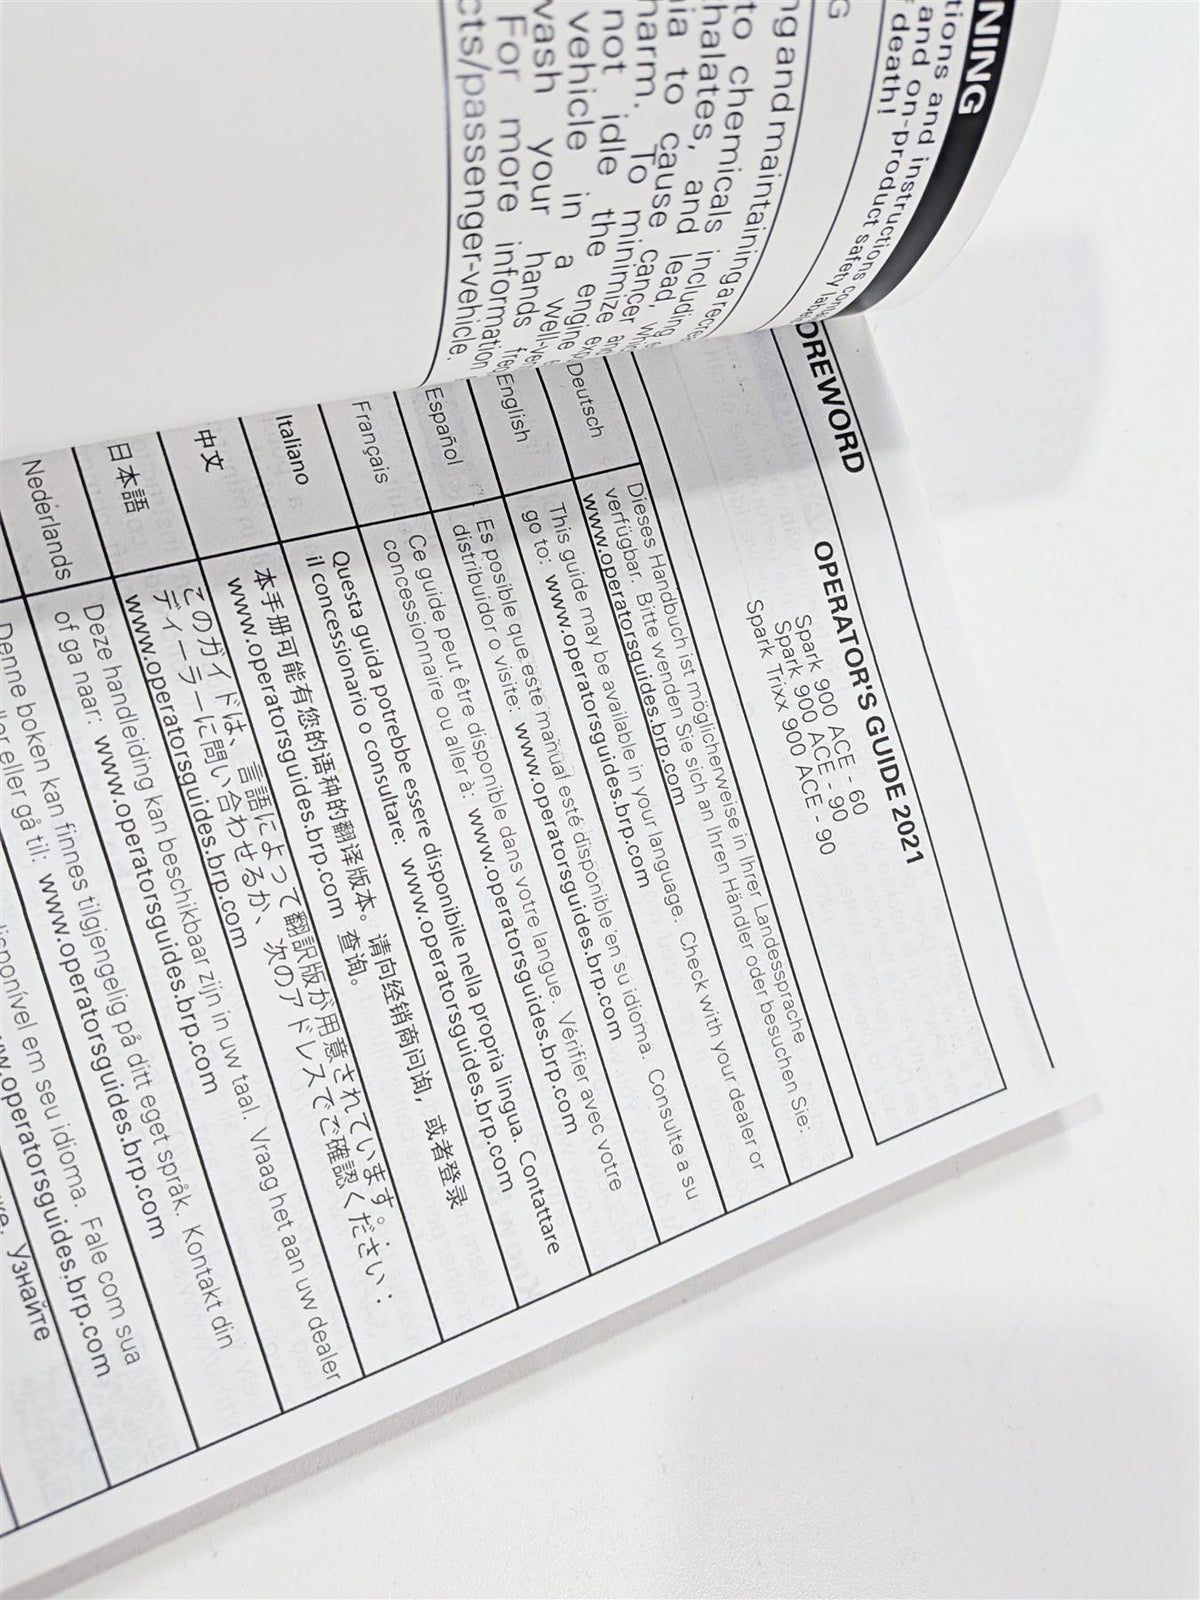 NING
tions and instructions
and on-product safety
death!
G
ng and maintaining a
to chemicals including
halates, and lead,
ia to cause cancer
harm. To minimize
not idle the engine
vehicle in a
wash your hands
For more information
cts/passenger-vehicle.
OREWORD
OPERATOR'S GUIDE 2021
Spark 900 ACE - 60
Spark 900 ACE - 90
Spark Trixx 900 ACE - 90
Deutsch
Dieses Handbuch ist möglicherweise in Ihrer Landessprache
verfügbar. Bitte wenden Sie sich an Ihren Händler oder besuchen Sie:
www.operatorsguides.brp.com
English
This guide may be available in your language. Check with your dealer or
go to: www.operatorsguides.brp.com
Español
Es posible que este manual esté disponible en su idioma. Consulte a su
distribuidor o visite: www.operatorsguides.brp.com
Français
Ce guide peut être disponible dans votre langue. Vérifier avec votre
concessionnaire ou aller à: www.operatorsguides.brp.com
Italiano
Questa guida potrebbe essere disponibile nella propria lingua. Contattare
il concessionario o consultare: www.operatorsguides.brp.com
中文
本手册可能有您的语种的翻译版本。请向经销商问询，或者登录
www.operatorsguides.brp.com 查询。
日本語
このガイドは、言語によって翻訳版が用意されています。
ディーラーに問い合わせるか、次のアドレスでご確認ください：
www.operatorsguides.brp.com
Nederlands
Deze handleiding kan beschikbaar zijn in uw taal. Vraag het aan uw dealer
of ga naar: www.operatorsguides.brp.com
Denne boken kan finnes tilgjengelig på ditt eget språk. Kontakt din
eller gå til: www.operatorsguides.brp.com
disponível em seu idioma. Fale com sua
www.operatorsguides.brp.com
Узнайте